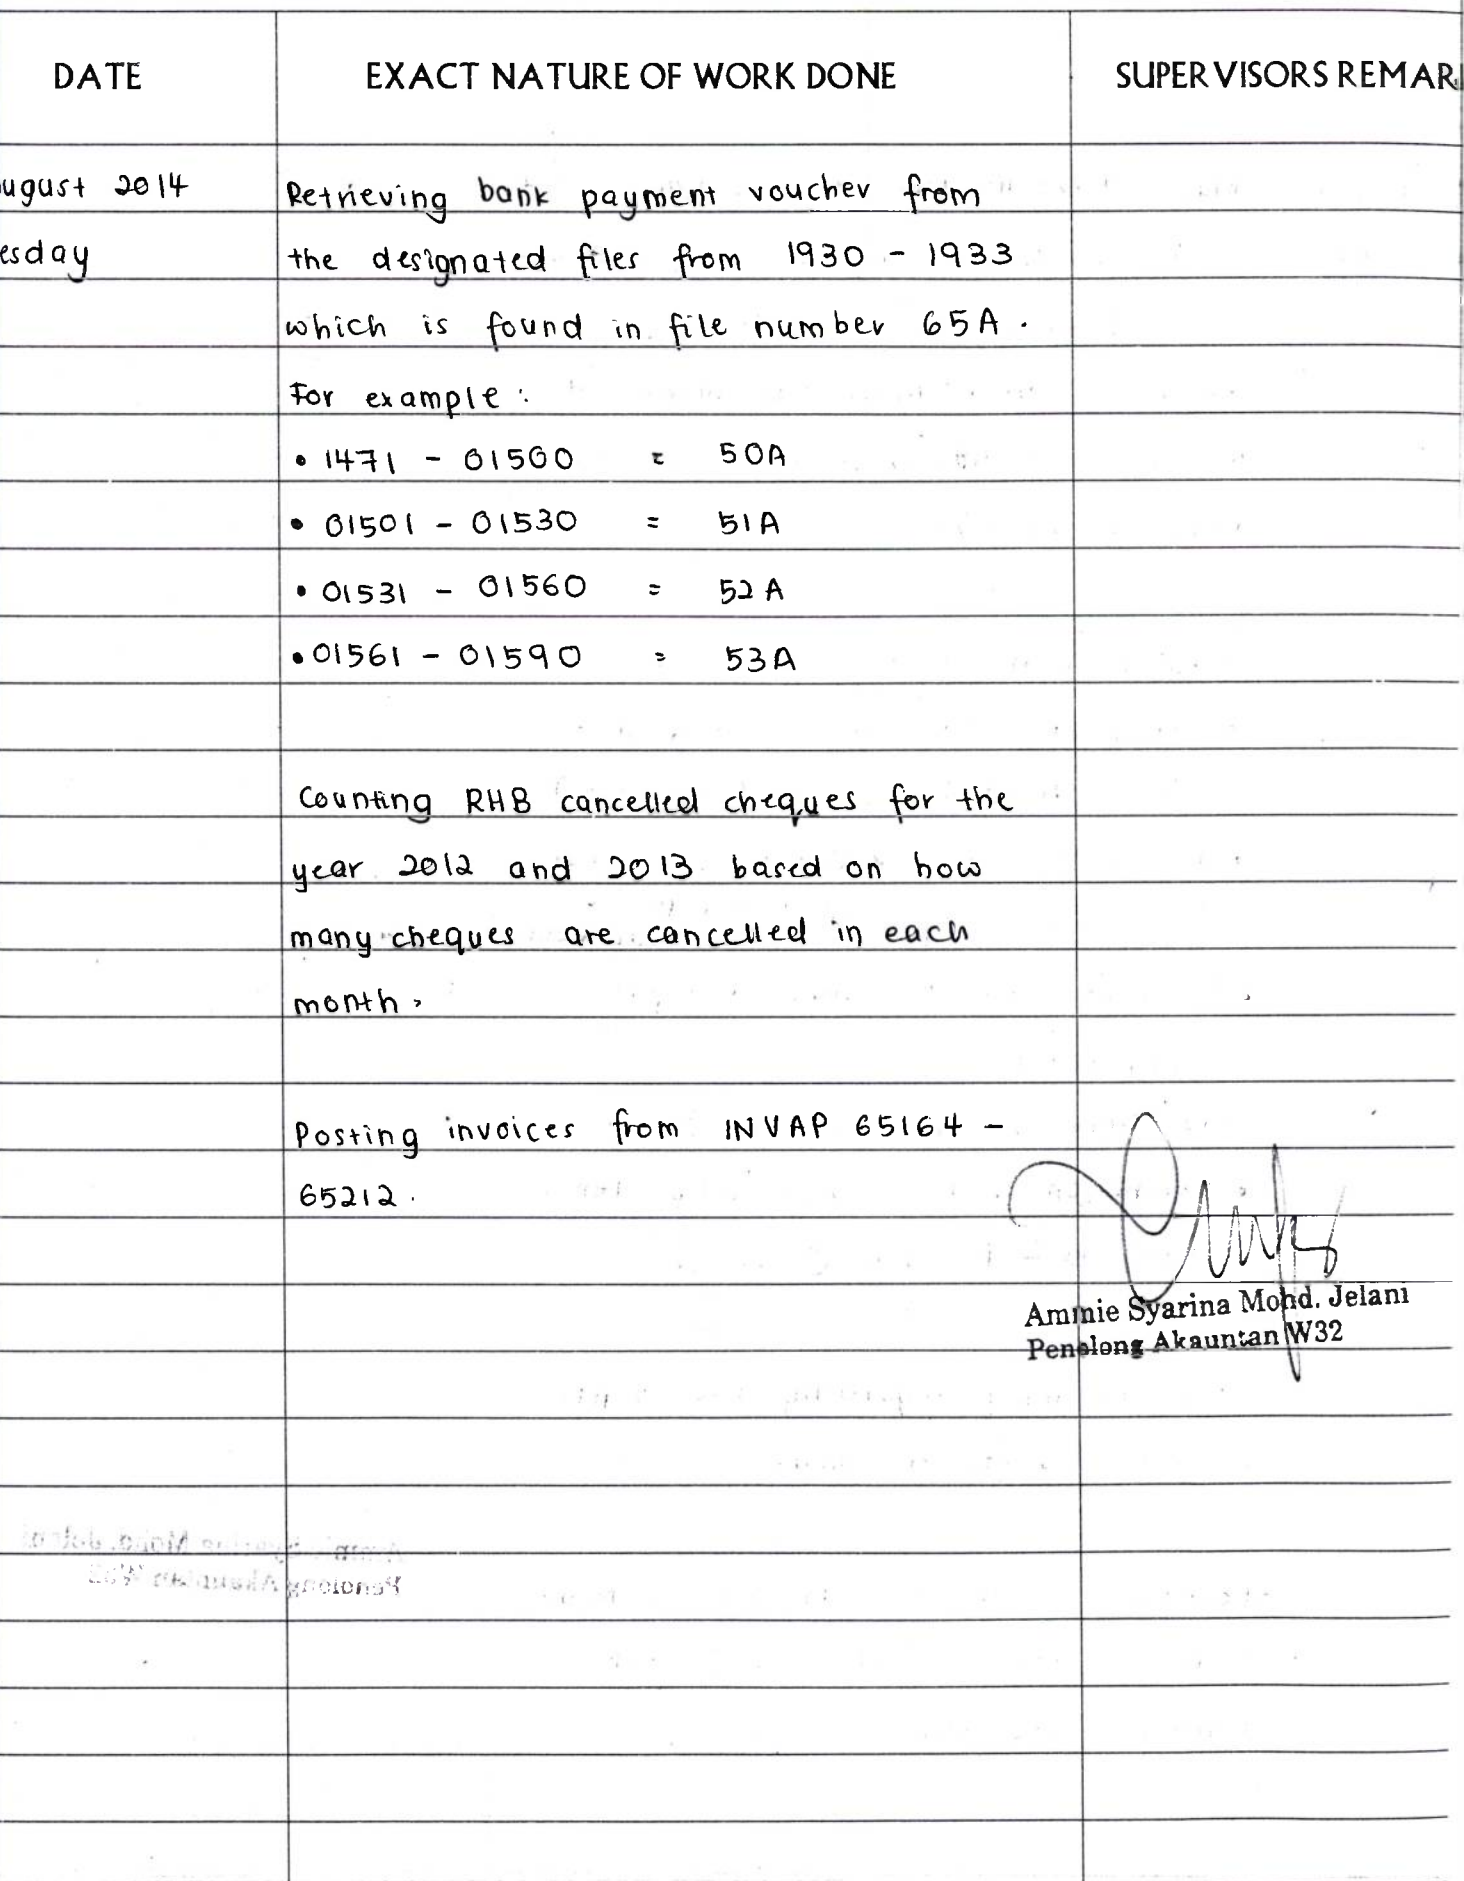 DATE EXACT NATURE OF WORK DONE SUPERVISORS REMAR
ugust 2014 Retrieving bank payment voucher from
esday the designated files from 1930 - 1933
which is found in file number 65A.
For example:
• 1471 - 01500 = 50A
• 01501 - 01530 = 51A
• 01531 - 01560 = 52A
• 01561 - 01590 = 53A
Counting RHB cancelled cheques for the
year 2012 and 2013 based on how
many cheques are cancelled in each
month.
Posting invoices from INVAP 65164 -
65212.
Ammie Syarina Mohd. Jelani
Penolong Akauntan W32